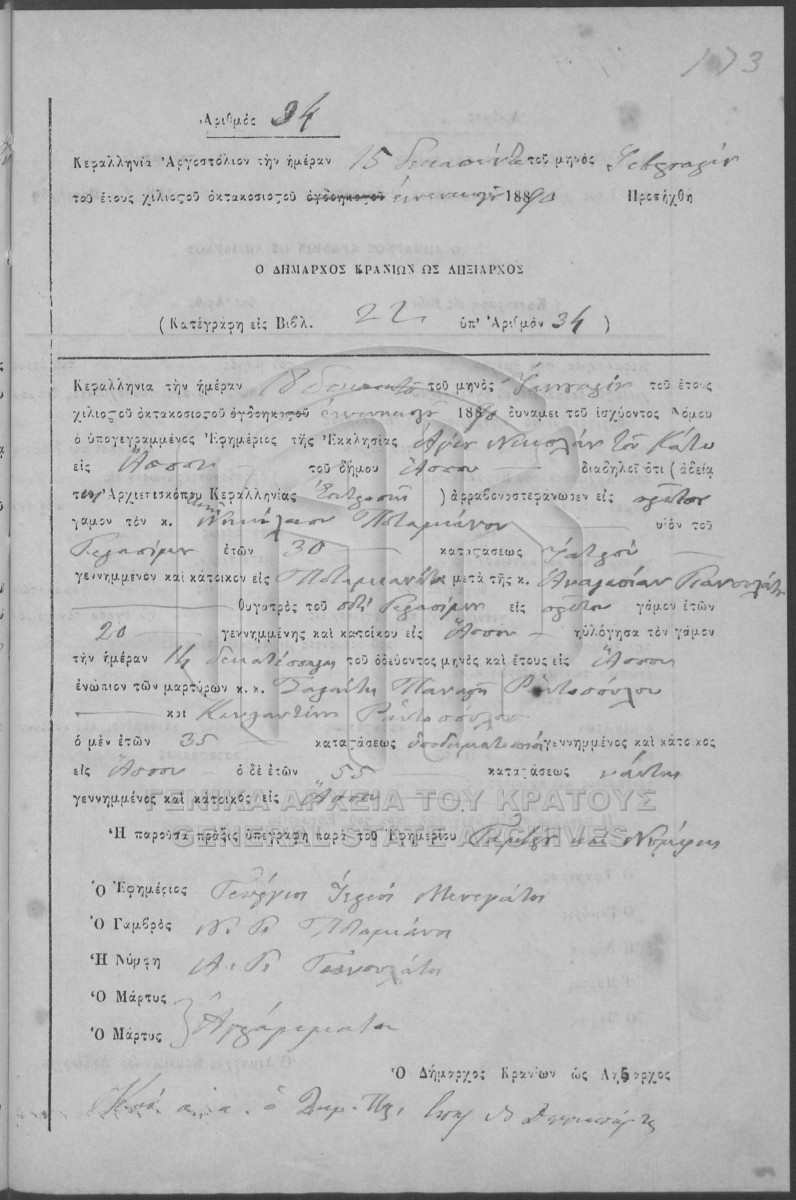 173
Ἀριθμός 34
Κεφαλληνία Ἀργοστόλιον τὴν ἡμέραν 15 δεκαπέντε τοῦ μηνὸς Φεβρουαρίου
τοῦ ἔτους χιλιοςοῦ ὀκτακοσιοςοῦ ὀγδοηκοςοῦ ἐννενηκοςοῦ 1890 Προσήχθη
Ο ΔΗΜΑΡΧΟΣ ΚΡΑΝΙΩΝ ΩΣ ΛΗΞΙΑΡΧΟΣ
(Κατέγράφη εἰς Βιβλ. 22 ὑπ' Ἀριθμὸν 34)
Κεφαλληνία τὴν ἡμέραν 18 τοῦ μηνὸς Ἰανουαρίου τοῦ ἔτους
χιλιοςοῦ ὀκτακοσιοςοῦ ὀγδοηκοςοῦ ἐννενηκοςοῦ 1890 δυνάμει τοῦ ἰσχύοντος Νόμου
ὁ ὑπογεγραμμένος Ἐφημέριος τῆς Ἐκκλησίας Ἁγίου Νικολάου τοῦ Κάτω
εἰς Ἄσσον τοῦ δήμου Ἄσσου διαδηλοῖ ὅτι (ἀδείᾳ
Ἀρχιεπισκόπου Κεφαλληνίας) ἀρραβωνοστεφάνωσεν εἰς πρῶτον
γάμον τὸν κ. Νικόλαον Ποταμιάνον υἱὸν τοῦ
Γερασίμου ἐτῶν 30 καταςάσεως Ἰατροῦ
γεννημμένον καὶ κάτοικον εἰς Ποταμιανάτα μετὰ τῆς κ. Γιαννουλάτου
θυγατρὸς τοῦ ποτὲ Γερασίμου εἰς πρῶτον γάμον ἐτῶν
20 γεννημμένης καὶ κατοίκου εἰς Ἄσσον ηὐλόγησα τὸν γάμον
τὴν ἡμέραν 14 δεκατέσσαρες τοῦ ὁδεύοντος μηνὸς καὶ ἔτους εἰς Ἄσσον
ἐνώπιον τῶν μαρτύρων κ. κ. Παναγῆ
καὶ Κωνσταντίνου
ὁ μὲν ἐτῶν 35 καταςάσεως ὑποδηματοποιοῦ γεννημμένος καὶ κάτοικος
εἰς Ἄσσον ὁ δὲ ἐτῶν 55 καταςάσεως ναύτης
γεννημμένος καὶ κάτοικος εἰς Ἄσσον
ΓΕΝΙΚΑ ΑΡΧΕΙΑ ΤΟΥ ΚΡΑΤΟΥΣ
GENERAL STATE ARCHIVES
Ἡ παροῦσα πρᾶξις ὑπεγράφη παρὰ τοῦ Ἐφημερίου Γαμβροῦ καὶ Νύμφης
Ὁ Ἐφημέριος Γεώργιος Ἱερεὺς Μενεγάτος
Ὁ Γαμβρὸς Ν. Γ. Ποταμιάνος
Ἡ Νύμφη Α. Γ. Γιαννουλάτου
Ὁ Μάρτυς
Ὁ Μάρτυς Ἀγράμματοι
Ὁ Δήμαρχος Κρανίων ὡς Ληξίαρχος